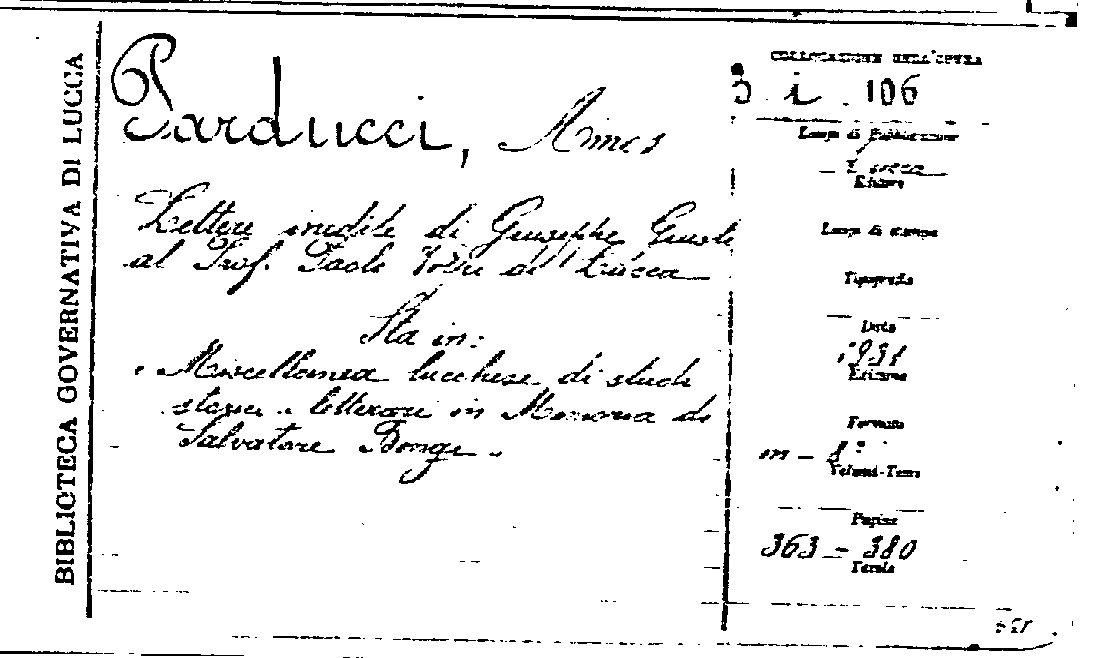 BIBLIOTECA GOVERNATIVA DI LUCCA
Parducci, Amos
Lettere inedite di Giuseppe Giusti
al Prof. Paolo di Lucca
Sta in:
"Miscellanea lucchese di studi
storici e letterari in Memoria di
Salvatore Bongi".
COLLOCAZIONE DELL'OPERA
3 i . 106
Luogo di Pubblicazione
Lucca
Editore
Luogo di stampa
Tipografia
Data
1931
Edizione
Formato
in - 8°
Volumi-Tomi
Pagine
363 - 380
Tavole